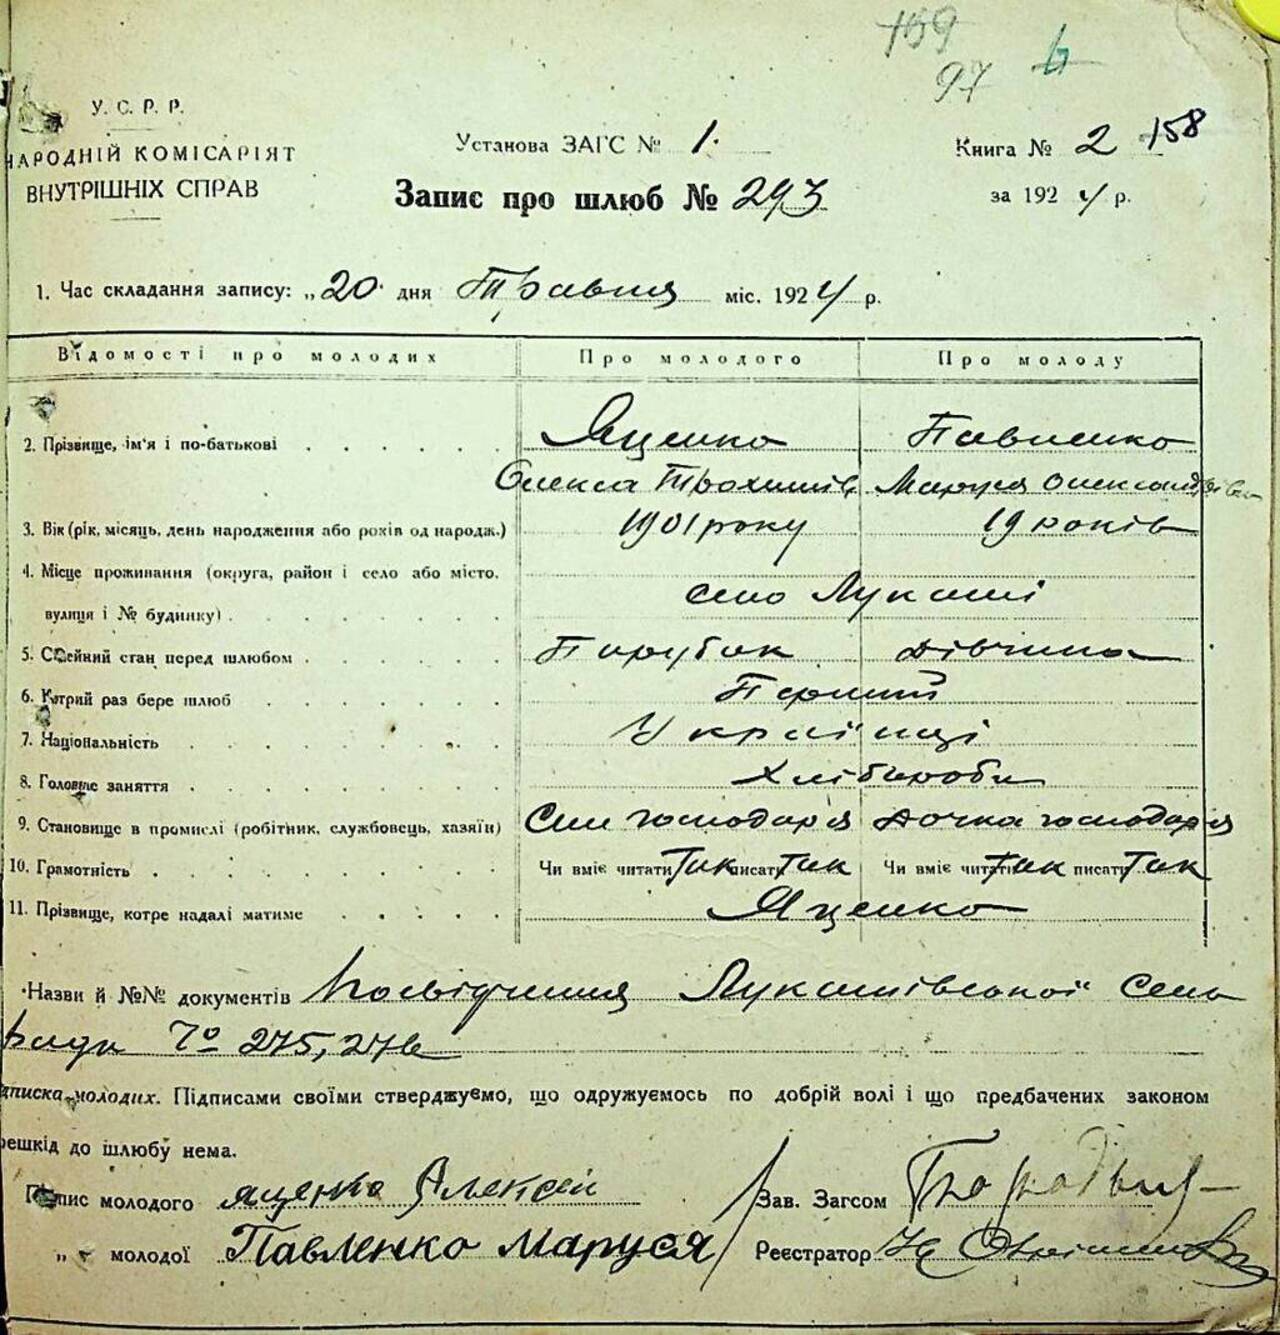 159
97 6
У. С. Р. Р.
НАРОДНІЙ КОМІСАРІЯТ
ВНУТРІШНІХ СПРАВ
Установа ЗАГС № 1.
Книга № 2 158
Запис про шлюб № 293
за 1924 р.
1. Час складання запису: „20" дня Травня міс. 1924 р.
Відомості про молодих Про молодого Про молоду
2. Прізвище, ім'я і по-батькові Яценко Павленко
Олекса Трохимів Маруся Олександрівна
3. Вік (рік, місяць, день народження або рохів од народж.) 1901 року 19 років
4. Місце проживання (округа, район і село або місто,
вулиця і № будинку) село Лукаші
5. Сімейний стан перед шлюбом Парубок Дівчина
6. Котрий раз бере шлюб Перший
7. Національність Українці
8. Головне заняття Хлібороби
9. Становище в промислі (робітник, службовець, хазяїн) Син господаря Дочка господаря
10. Грамотність Чи вміє читати Так писати Так Чи вміє читати Так писати Так
11. Прізвище, котре надалі матиме Яценко
Назви й №№ документів Посвідчення Лукашівської Сель
Ради № 275, 276
дписка молодих. Підписами своїми стверджуємо, що одружуємось по добрій волі і що предбачених законом
решкід до шлюбу нема.
Підпис молодого яценко Алексей Зав. Загсом
„ молодої Павленко Маруся Реєстратор